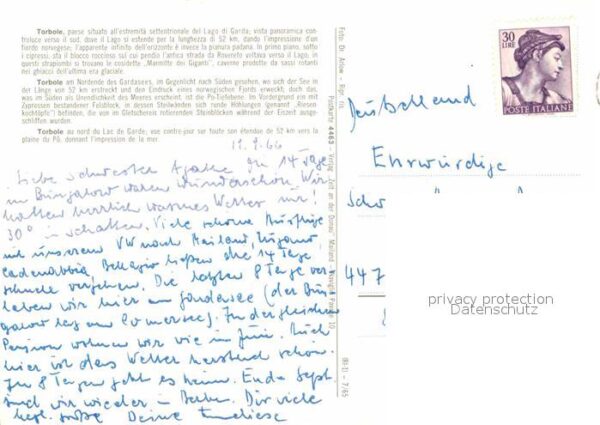 Torbole, paese situato all'estremità settentrionale del Lago di Garda; vista panoramica con-
troluce verso il sud, dove il Lago si estende per la lunghezza di 52 km, dando l'impressione d'un
fiordo norvegese; l'apparente infinità dell'orizzonte è invece la pianura padana. In primo piano, sotto
i cipressi, sta il blocco roccioso sul cui pendio l'antica strada da Rovereto voltava verso il Lago; in
questi strapiombi si trovano le cosidette „Marmitte dei Giganti", caverne prodotte da sassi rotanti
nei ghiacci dell'ultima era glaciale.
Torbole am Nordende des Gardasees, im Gegenlicht nach Süden gesehen, wo sich der See in
der Länge von 52 km erstreckt und den Eindruck eines norwegischen Fjords erweckt; doch das,
was im Süden als Unendlichkeit des Meeres erscheint, ist die Po-Tiefebene. Im Vordergrund ein mit
Zypressen bestandener Felsblock, in dessen Steilwänden sich runde Höhlungen (genannt „Riesen
kochtöpfe") befinden, die von im Gletschereis rotierenden Steinblöcken während der Eiszeit ausge-
schliffen wurden.
Torbole au nord du Lac de Garde; vue contre-jour sur toute son étendue de 52 km vers la
plaine du Pô, donnant l'impression de la mer
11.9.66
Liebe Schwester Agathe 14 Tage
im Bungalow waren wunderschön. Wir
hatten herrlich warmes Wetter nur!
30° im Schatten. Viele schöne Ausflüge
mit unserem VW nach Mailand, Lugano,
Cadenabbia, Bellagio ließen die 14 Tage
schnell vergehen. Die letzten 8 Tage ver-
leben wir hier am Gardasee (der Bun-
galow lag am Comersee). In der gleichen
Pension wohnen wir wie im Juni. Auch
hier ist das Wetter herrlich schön.
In 8 Tagen geht es heim. Ende Sept.
sind wir wieder in Dir viele
herzl. Grüße Deine Anneliese
Foto: Dr. - Ripr. ris.
Postkarte 4463 - Verlag „Zeit an der Donau" Mailand
7/65
30
LIRE
POSTE ITALIANE
Deutschland
Ehrwürdige
Schw
447
privacy protection
Datenschutz